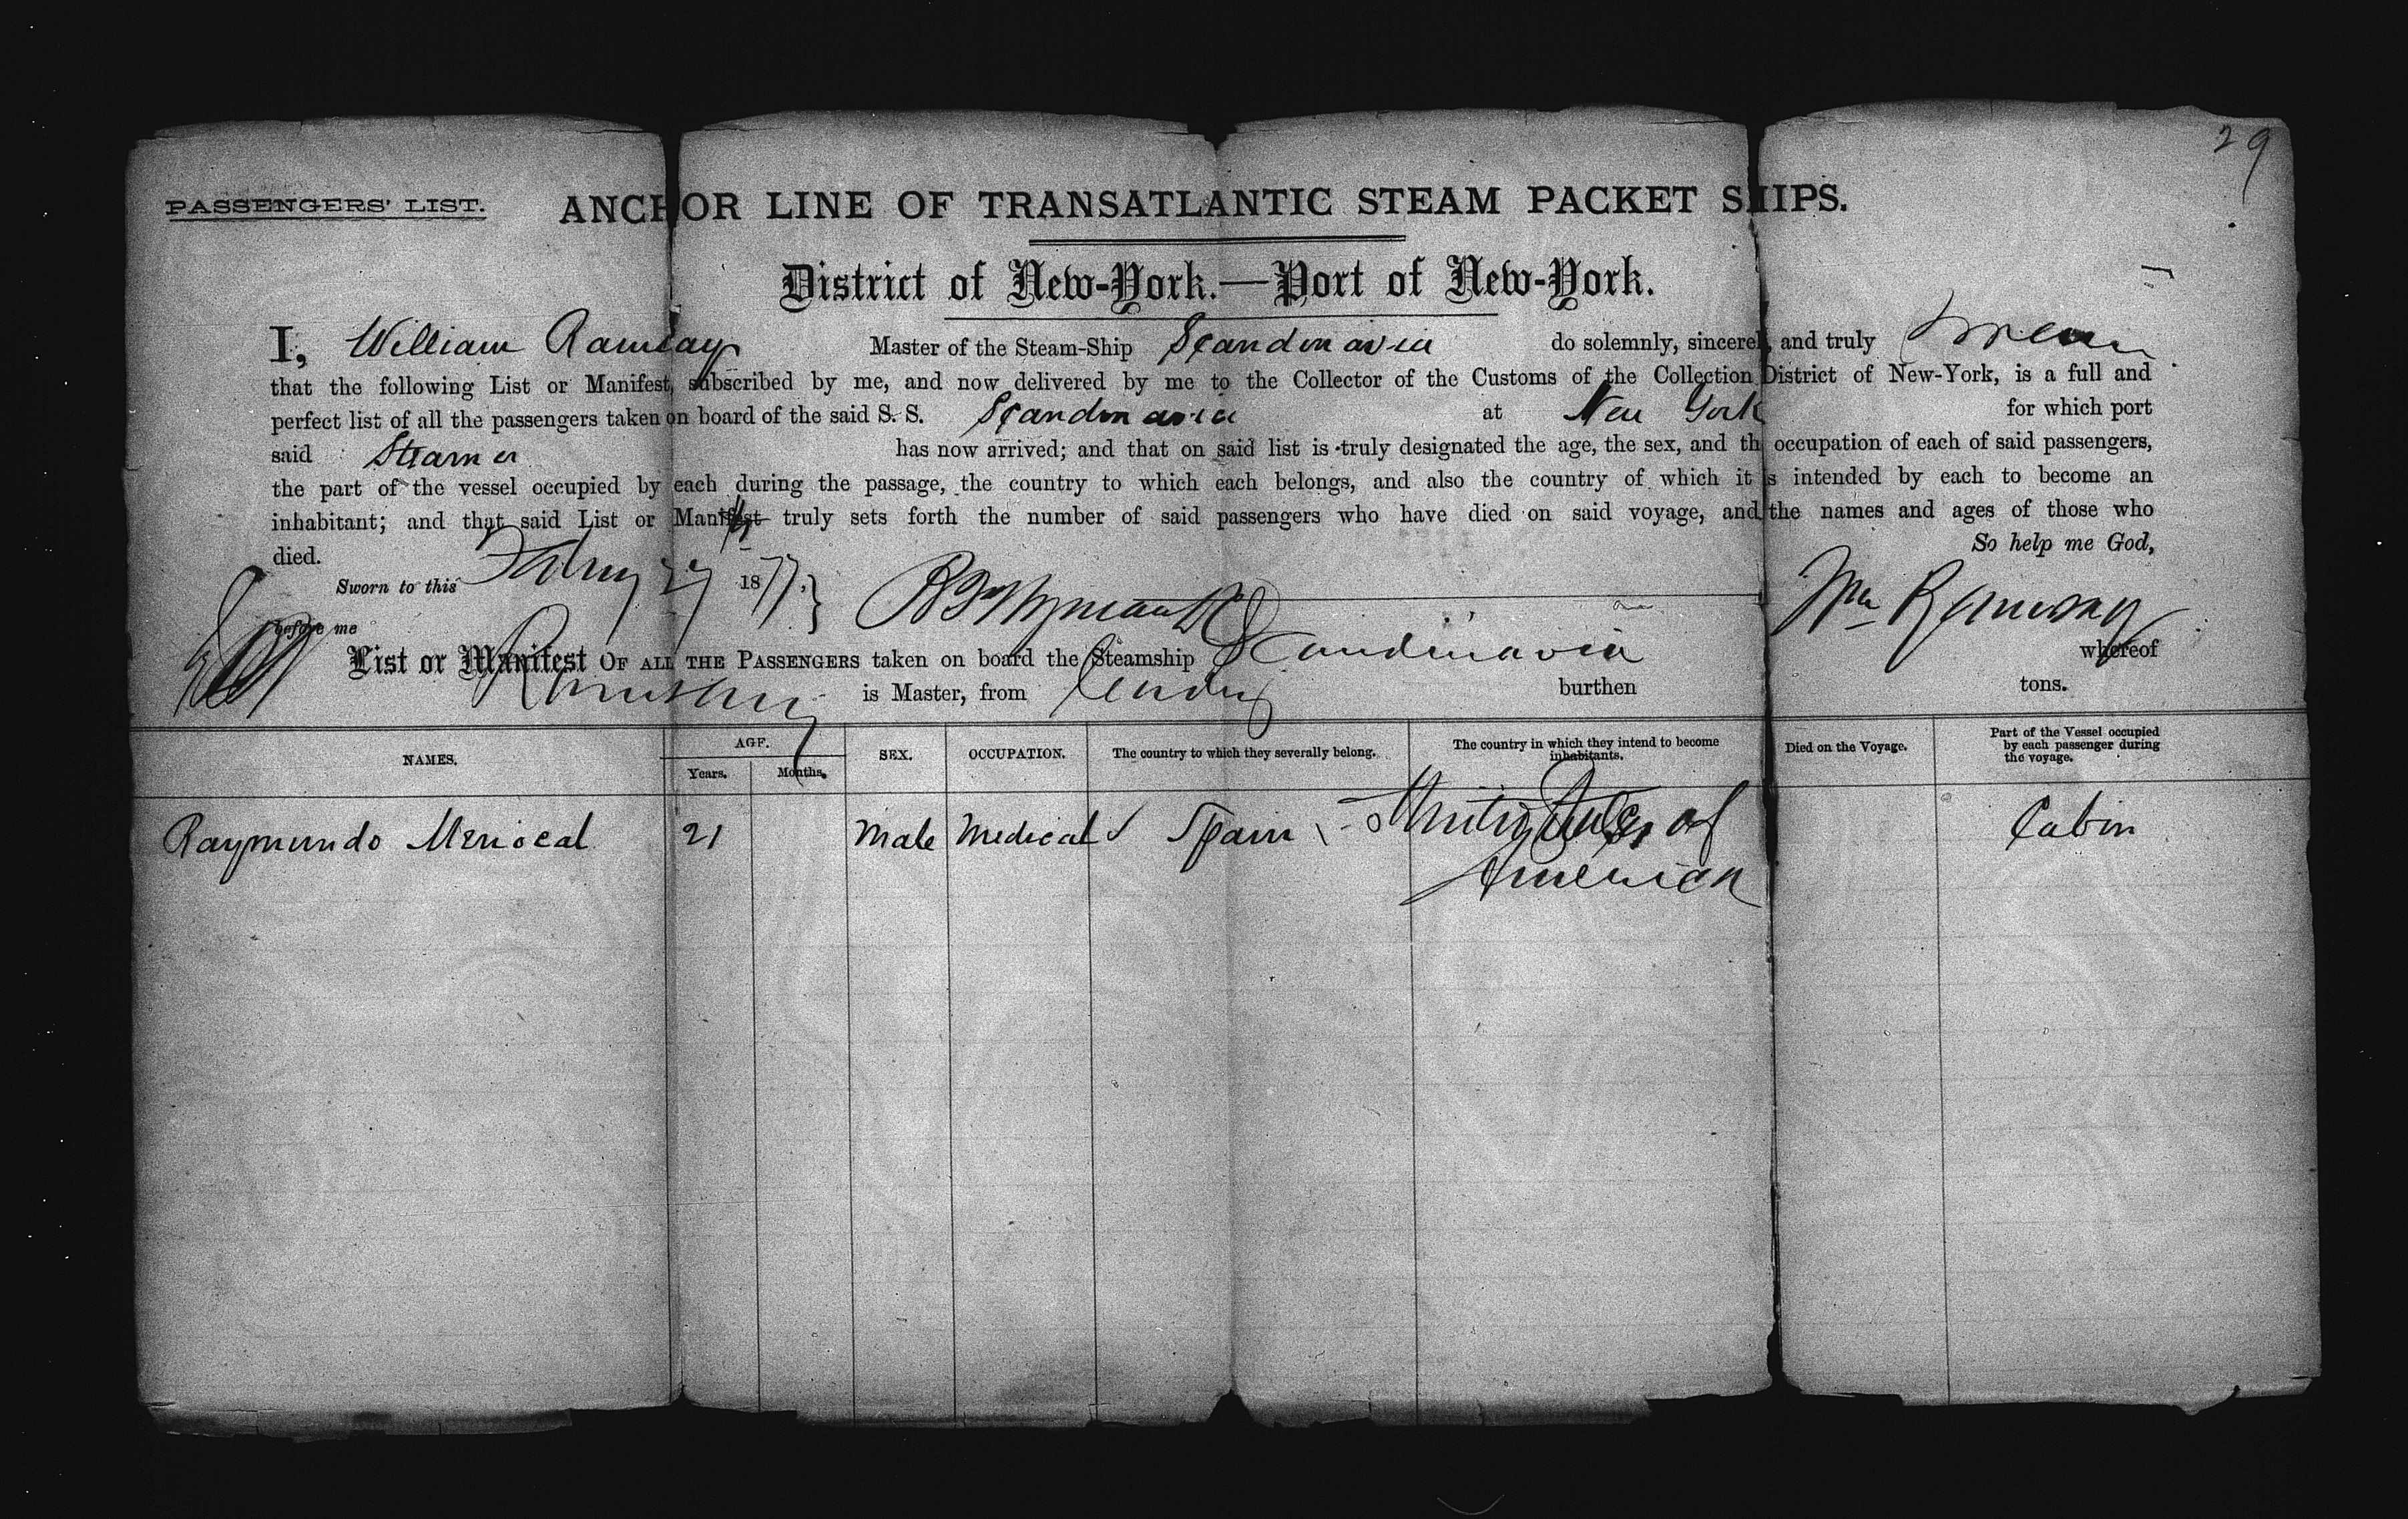 29
PASSENGERS' LIST. ANCHOR LINE OF TRANSATLANTIC STEAM PACKET SHIPS.
District of New-York.—Port of New-York.
I, William Ramsay Master of the Steam-Ship Scandinavia do solemnly, sincerely, and truly swear
that the following List or Manifest, subscribed by me, and now delivered by me to the Collector of the Customs of the Collection District of New-York, is a full and
perfect list of all the passengers taken on board of the said S. S. Scandinavia at New York for which port
said Steamer has now arrived; and that on said list is truly designated the age, the sex, and the occupation of each of said passengers,
the part of the vessel occupied by each during the passage, the country to which each belongs, and also the country of which it is intended by each to become an
inhabitant; and that said List or Manifest truly sets forth the number of said passengers who have died on said voyage, and the names and ages of those who
died. So help me God,
Sworn to this Febry 27 1877 Wm Ramsay
before me
List or Manifest OF ALL THE PASSENGERS taken on board the Steamship Scandinavia whereof
Ramsay is Master, from burthen tons.
NAMES. AGE. Years. Months. SEX. OCCUPATION. The country to which they severally belong. The country in which they intend to become inhabitants. Died on the Voyage. Part of the Vessel occupied by each passenger during the voyage.
Raymundo Menocal 21 Male Medical Spain United States of Cabin
America